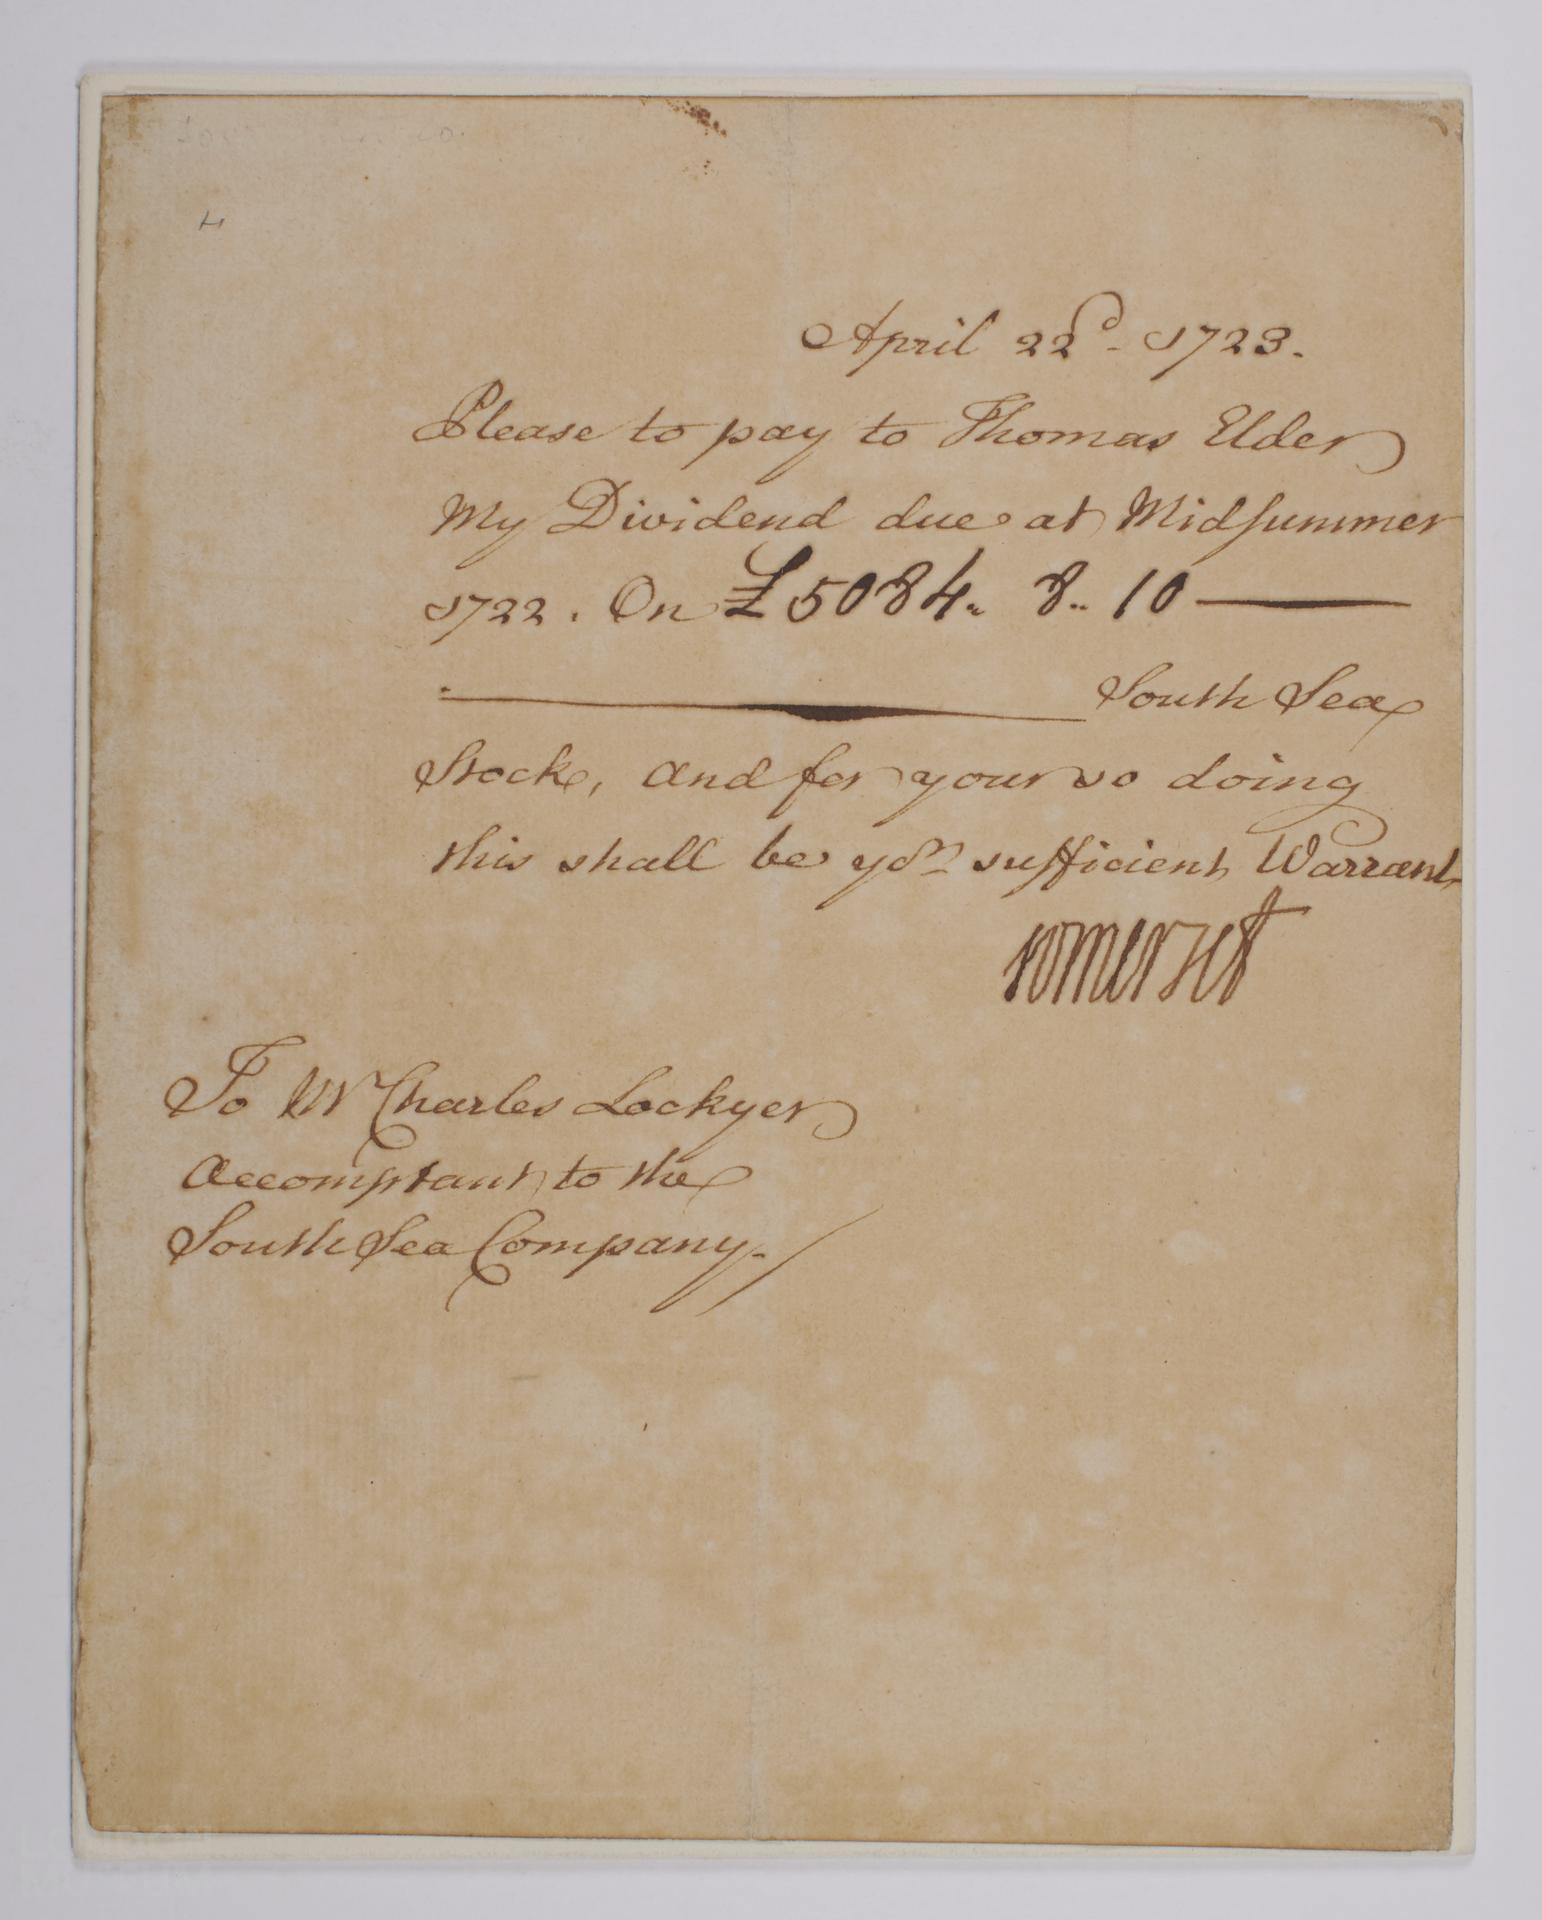 April 22d. 1723.
Please to pay to Thomas Elder
My Dividend due at Midsummer
1722. On £5084.. 8.. 10
South Sea
Stock, and for your so doing
this shall be yor. sufficient Warrant
somerset
To Mr Charles Lockyer
Accomptant to the
South Sea Company.